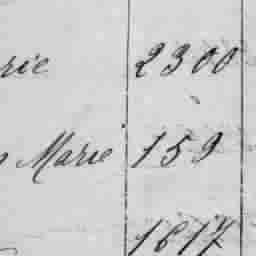 rie 2300
Marie 159
1617